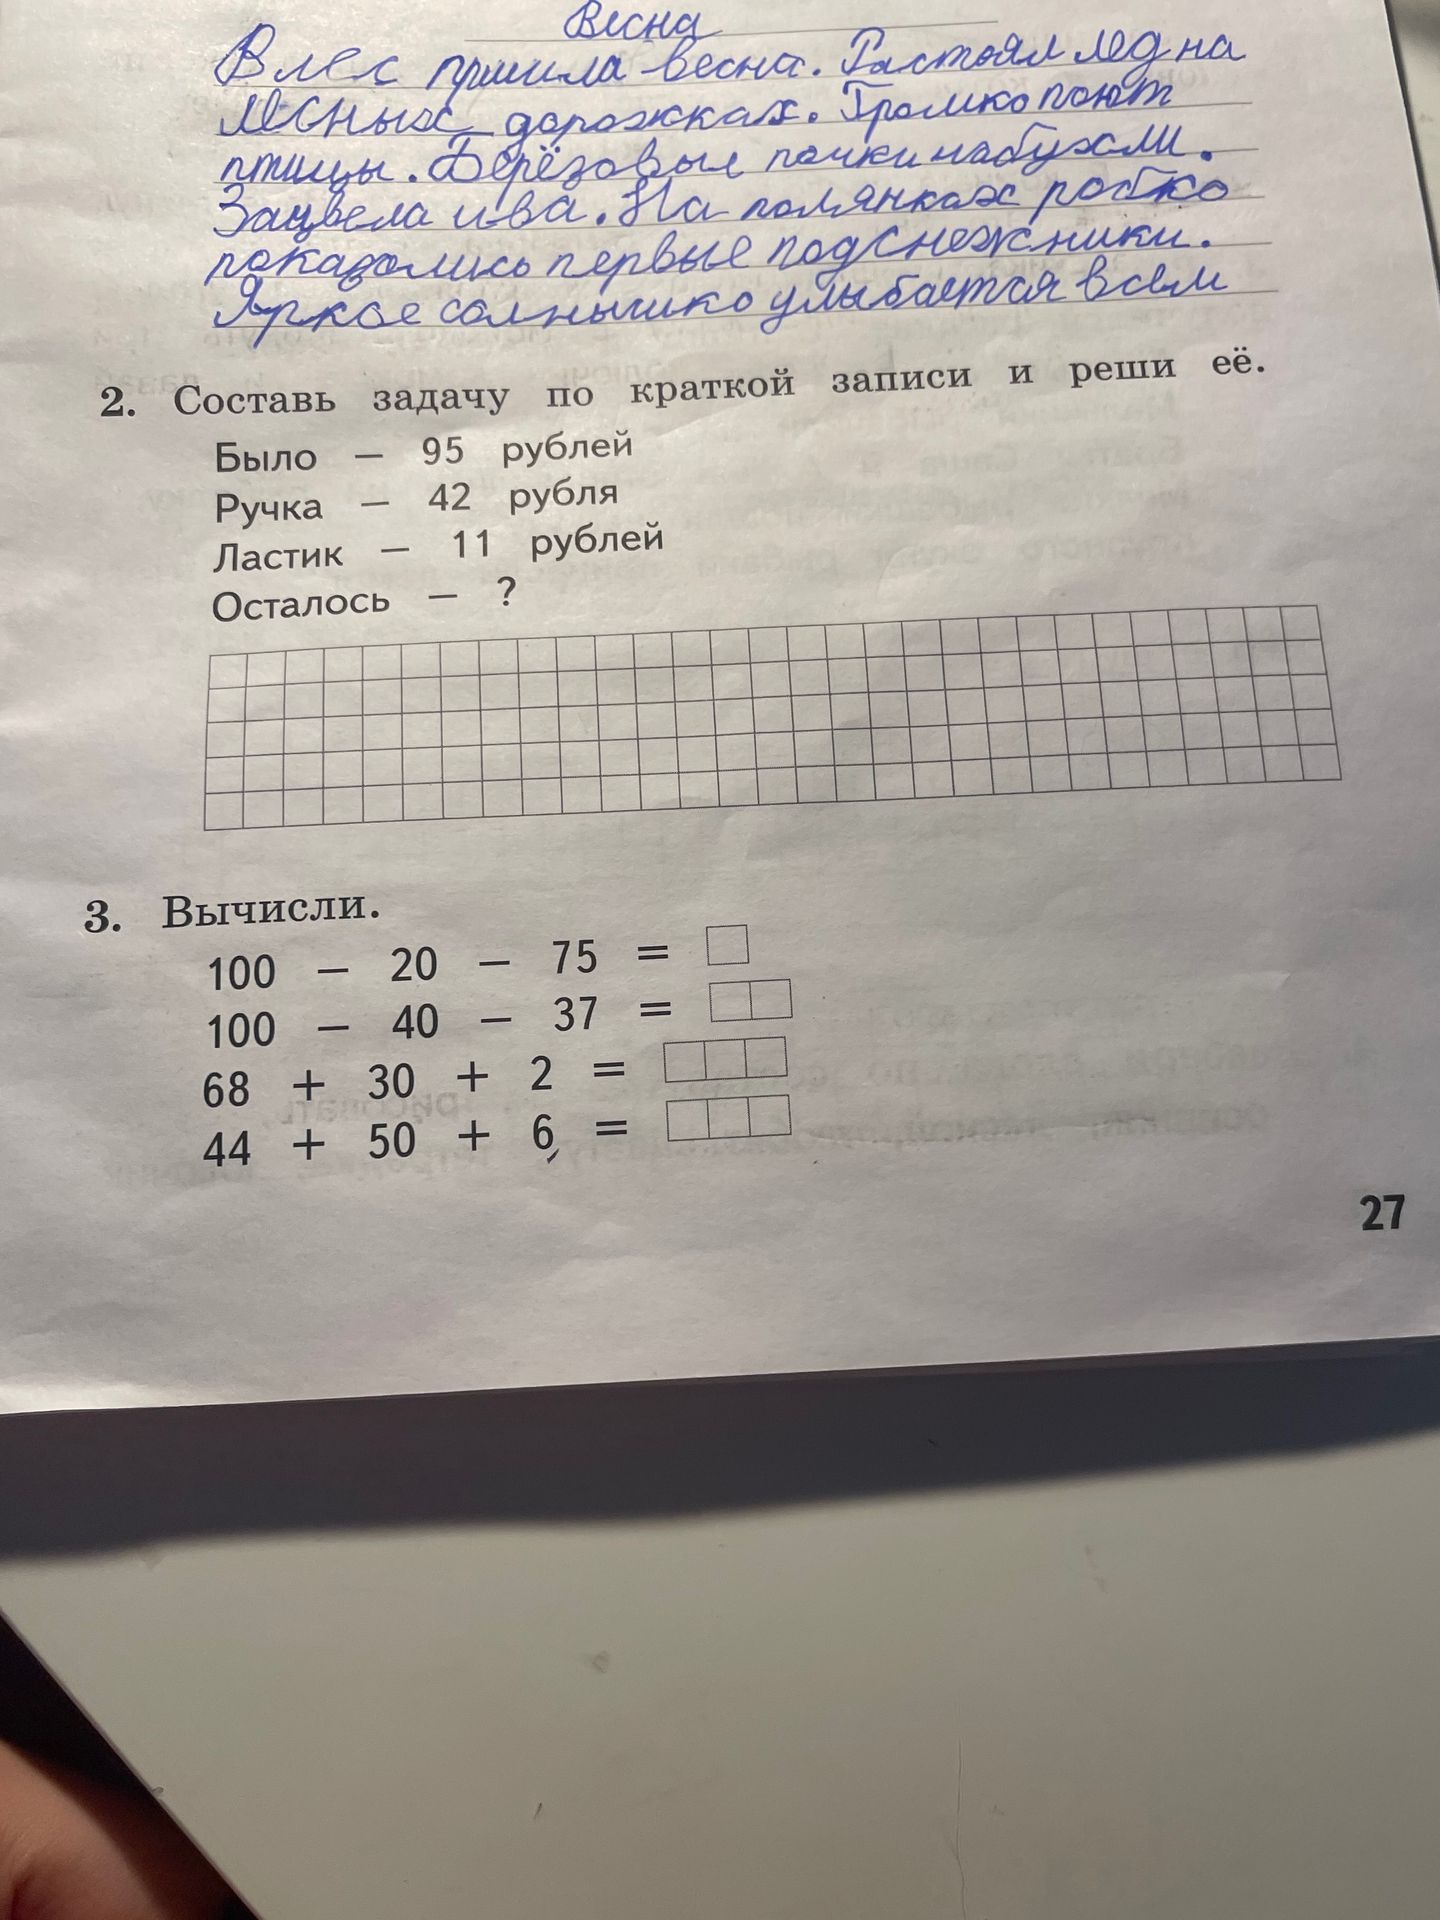 Весна
В лес пришла весна. Растаял лёд на
лесных дорожках. Громко поют
птицы. Берёзовые почки набухли.
Зацвела ива. На полянках робко
показались первые подснежники.
Яркое солнышко улыбается всем
2. Составь задачу по краткой записи и реши её.
Было — 95 рублей
Ручка — 42 рубля
Ластик — 11 рублей
Осталось — ?
3. Вычисли.
100 — 20 — 75 =
100 — 40 — 37 =
68 + 30 + 2 =
44 + 50 + 6 =
27